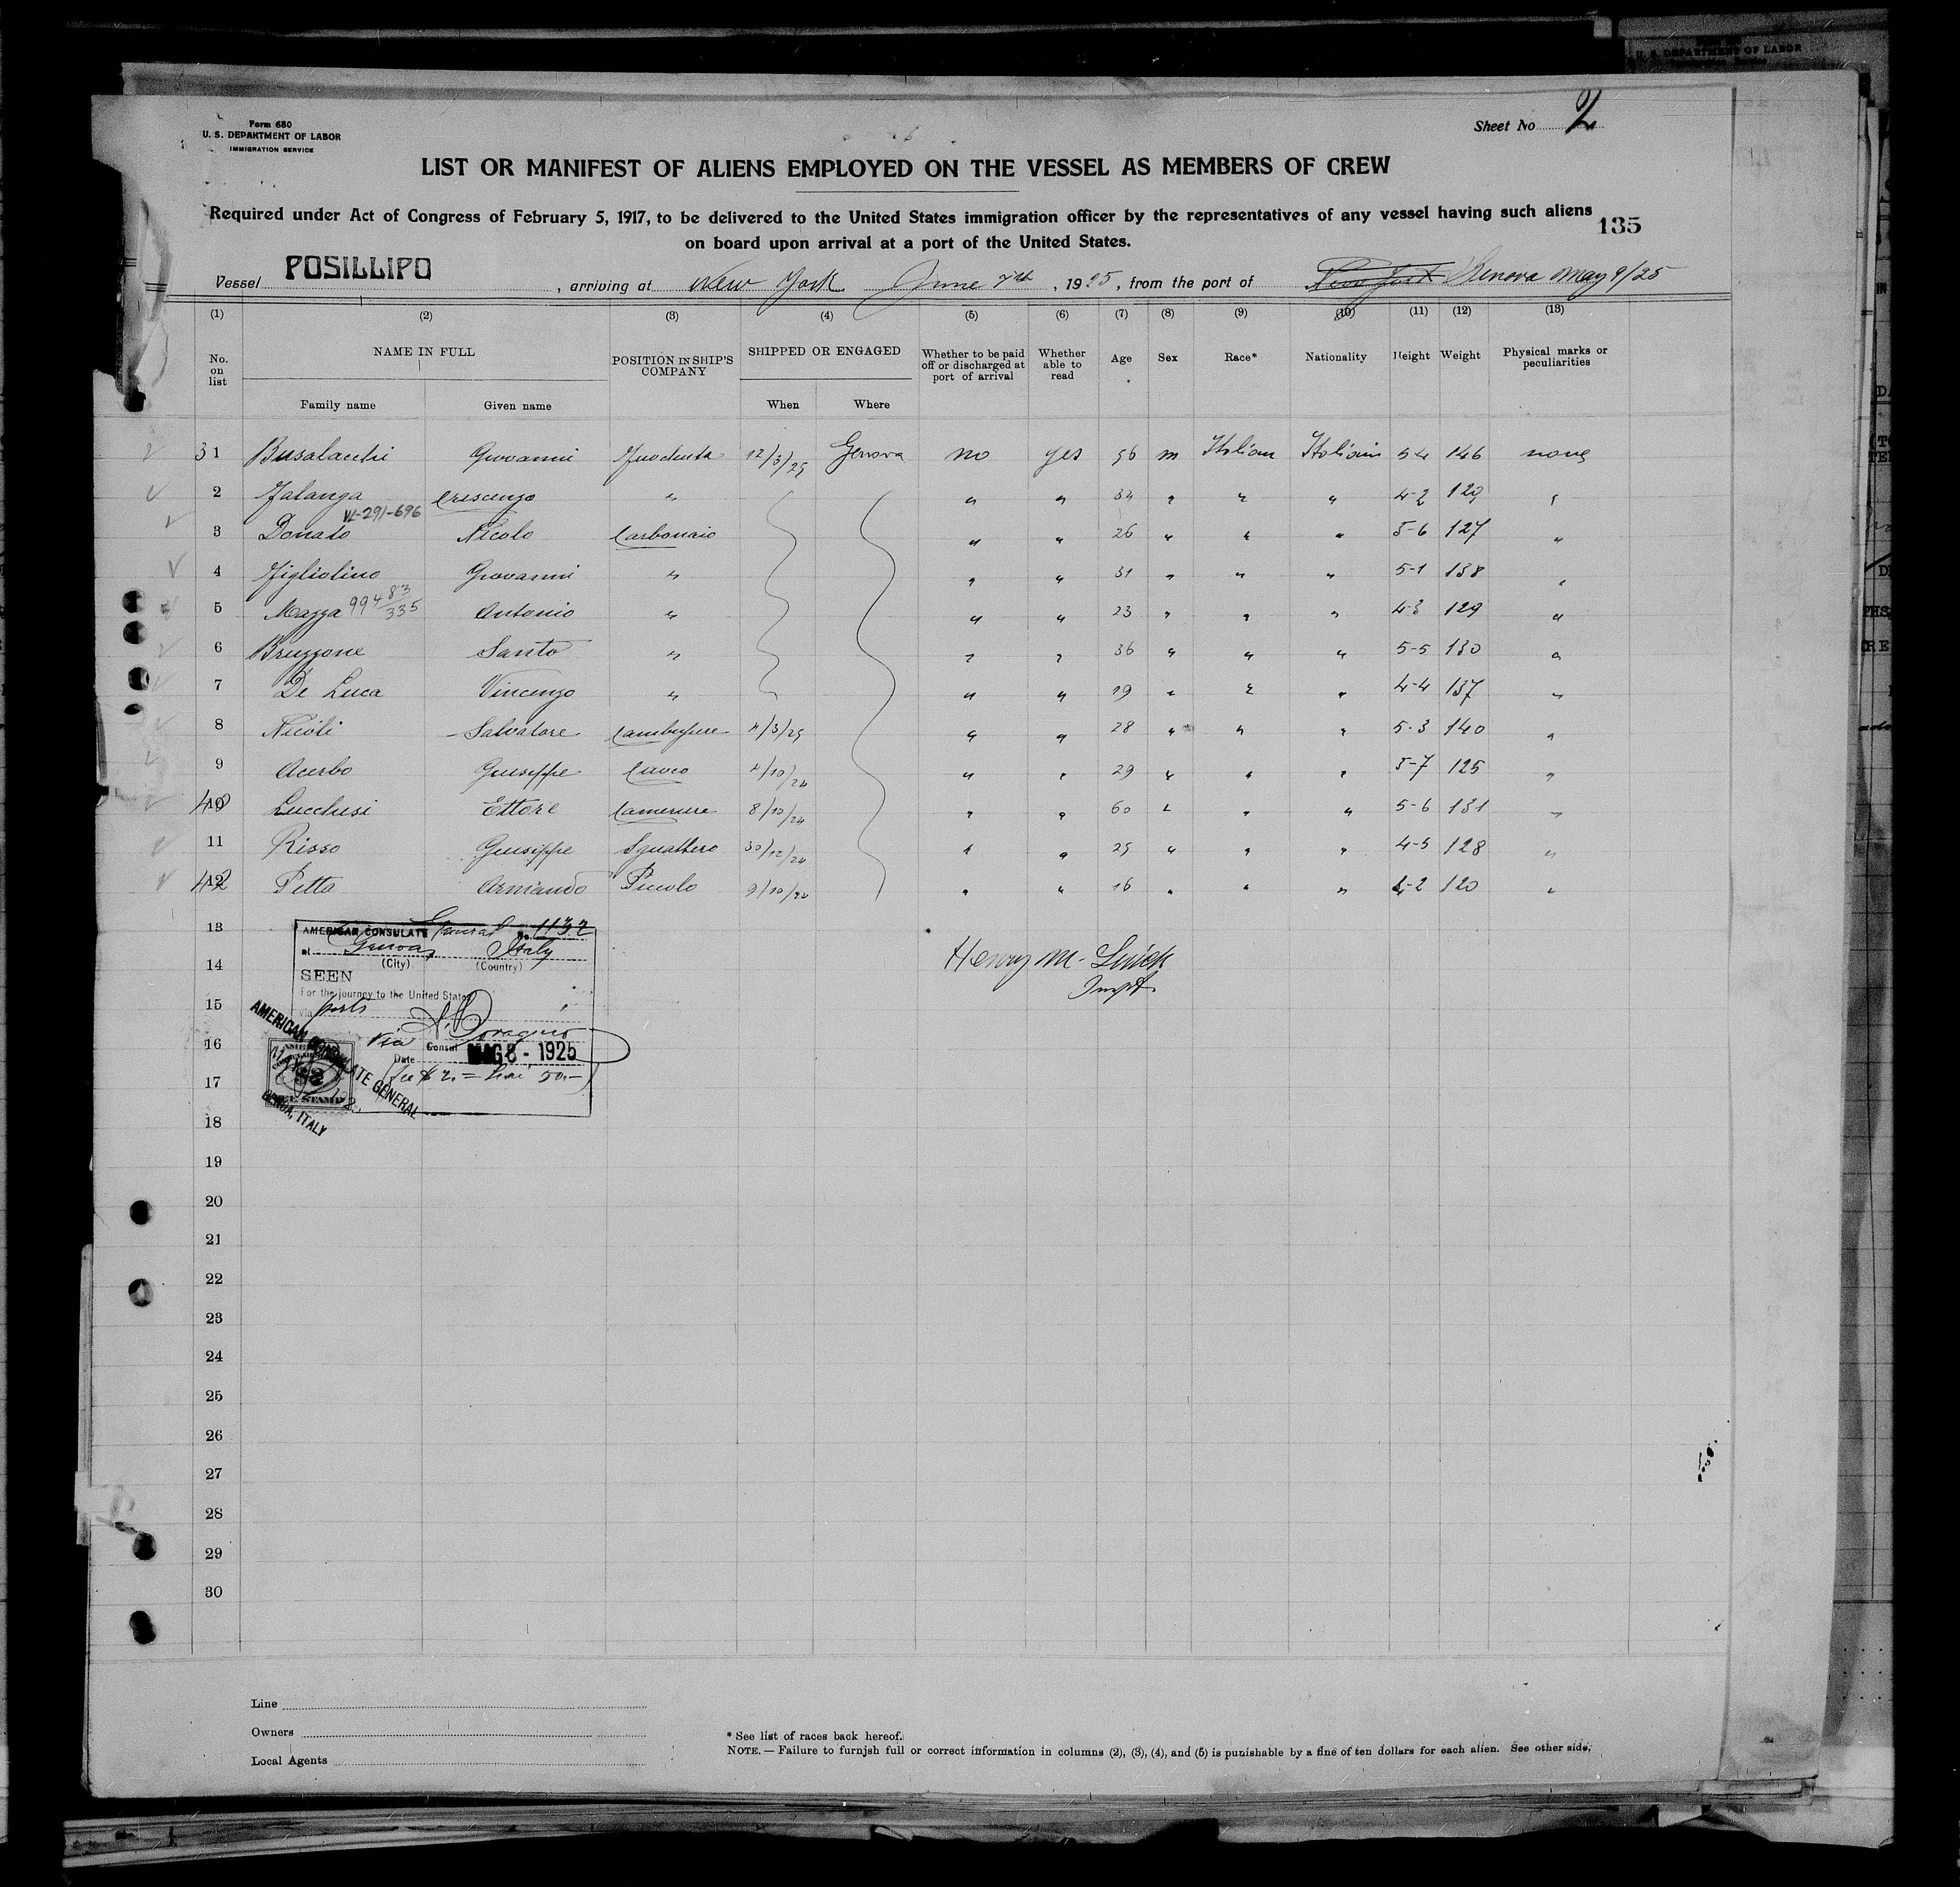 U. S. DEPARTMENT OF LABOR
Form 680
U. S. DEPARTMENT OF LABOR
IMMIGRATION SERVICE
Sheet No 2
LIST OR MANIFEST OF ALIENS EMPLOYED ON THE VESSEL AS MEMBERS OF CREW
Required under Act of Congress of February 5, 1917, to be delivered to the United States immigration officer by the representatives of any vessel having such aliens
on board upon arrival at a port of the United States.
135
Vessel POSILLIPO, arriving at New York June 7th, 1925, from the port of New York Genova May 9/25
(1) (2) (3) (4) (5) (6) (7) (8) (9) (10) (11) (12) (13)
No. on list NAME IN FULL POSITION IN SHIP'S COMPANY SHIPPED OR ENGAGED Whether to be paid off or discharged at port of arrival Whether able to read Age Sex Race* Nationality Height Weight Physical marks or peculiarities
Family name Given name When Where
31 Busalacchi Giovanni 12/3/25 Genova no yes 56 m Italian Italian 5-4 146 none
2 Falanga Crescenzo " " " 34 " " " 4-2 120 "
VL-291-696
3 Donato Nicolo Carbonaio " " 26 " " " 5-6 127 "
4 Figliolino Giovanni " " " 31 " " " 5-1 138 "
5 Mazza 99483/335 Antonio " " " 23 " " " 4-3 129 "
6 Bruzzone Santo " " " 36 " " " 5-5 130 "
7 De Luca Vincenzo " " " 19 " " " 4-4 137 "
8 Nicoli Salvatore 4/3/25 " " 28 " " " 5-3 140 "
9 Acerbo Giuseppe Cuoco 4/10/24 " " 29 " " " 5-7 125 "
40 Lucchesi Ettore Cameriere 8/10/24 " " 60 " " " 5-6 131 "
11 Risso Giuseppe Sguattero 30/12/24 " " 25 " " " 4-5 128 "
42 Petta Armando Piccolo 9/10/24 " " 16 " " " 4-2 120 "
13
14
15
16
17
18
19
20
21
22
23
24
25
26
27
28
29
30
AMERICAN CONSULATE General 1132
at Genoa, Italy
(City) (Country)
SEEN
For the journey to the United States
via ports
via
Consul
Date MAG 8 - 1925
(Fee $ 2. = Lire 50.-)
AMERICAN CONSULATE GENERAL
GENOA, ITALY
FEE STAMP
Henry M.
Inspt.
Line
Owners
Local Agents
* See list of races back hereof.
NOTE. — Failure to furnish full or correct information in columns (2), (3), (4), and (5) is punishable by a fine of ten dollars for each alien. See other side.